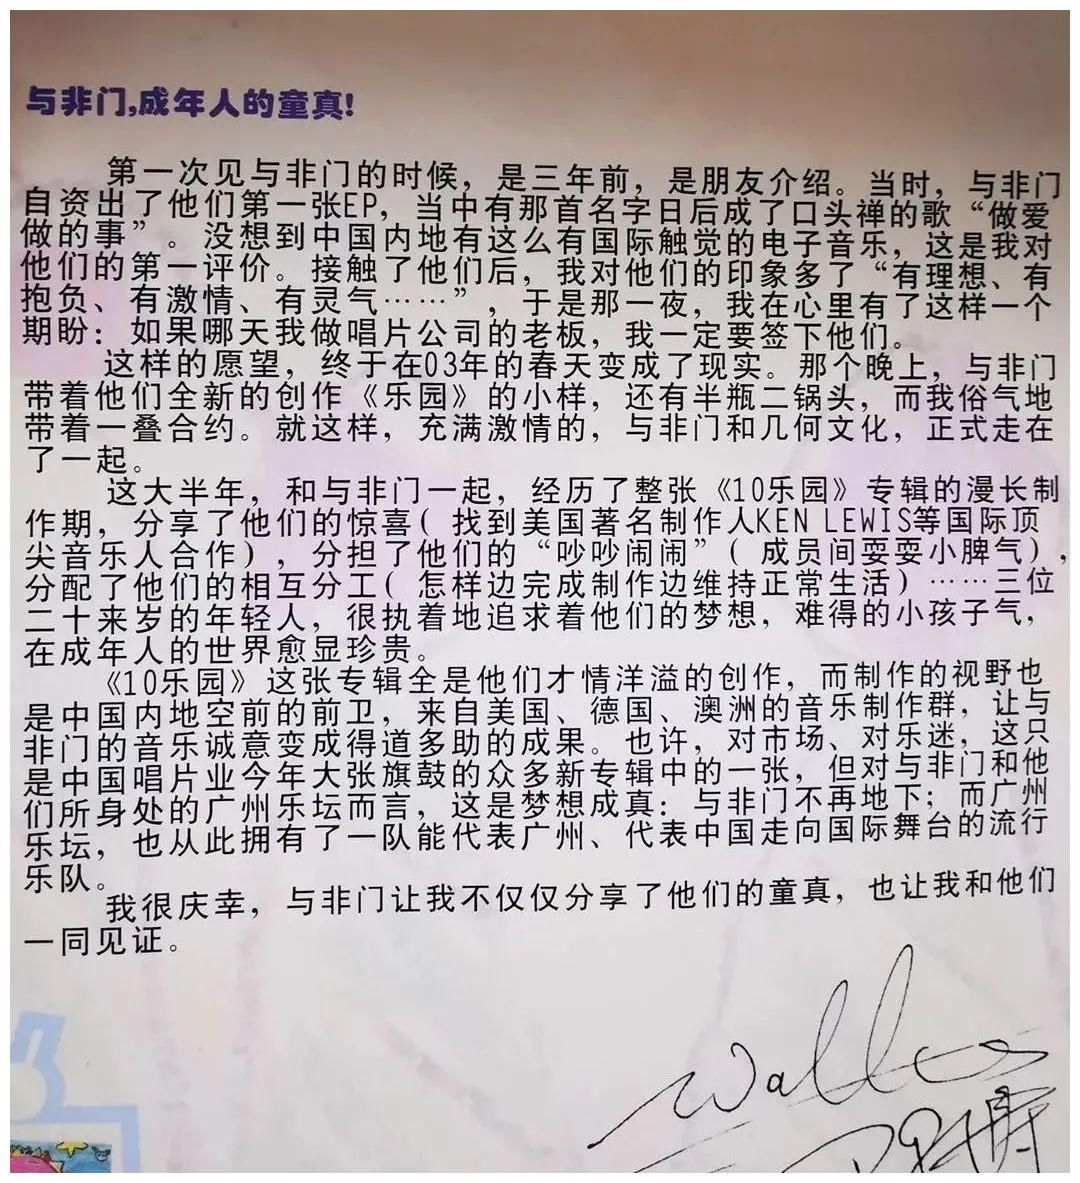 与非门,成年人的童真!
第一次见与非门的时候，是三年前，是朋友介绍。当时，与非门
自资出了他们第一张EP，当中有那首名字日后成了口头禅的歌“做爱
做的事”。没想到中国内地有这么有国际触觉的电子音乐，这是我对
他们的第一评价。接触了他们后，我对他们的印象多了“有理想、有
抱负、有激情、有灵气……”，于是那一夜，我在心里有了这样一个
期盼：如果哪天我做唱片公司的老板，我一定要签下他们。
这样的愿望，终于在03年的春天变成了现实。那个晚上，与非门
带着他们全新的创作《乐园》的小样，还有半瓶二锅头，而我俗气地
带着一叠合约。就这样，充满激情的，与非门和几何文化，正式走在
了一起。
这大半年，和与非门一起，经历了整张《10乐园》专辑的漫长制
作期，分享了他们的惊喜（找到美国著名制作人KEN LEWIS等国际顶
尖音乐人合作），分担了他们的“吵吵闹闹”（成员间耍耍小脾气），
分配了他们的相互分工（怎样边完成制作边维持正常生活）……三位
二十来岁的年轻人，很执着地追求着他们的梦想，难得的小孩子气，
在成年人的世界愈显珍贵。
《10乐园》这张专辑全是他们才情洋溢的创作，而制作的视野也
是中国内地空前的前卫，来自美国、德国、澳洲的音乐制作群，让与
非门的音乐诚意变成得道多助的成果。也许，对市场、对乐迷，这只
是中国唱片业今年大张旗鼓的众多新专辑中的一张，但对与非门和他
们所身处的广州乐坛而言，这是梦想成真：与非门不再地下；而广州
乐坛，也从此拥有了一队能代表广州、代表中国走向国际舞台的流行
乐队。
我很庆幸，与非门让我不仅仅分享了他们的童真，也让我和他们
一同见证。